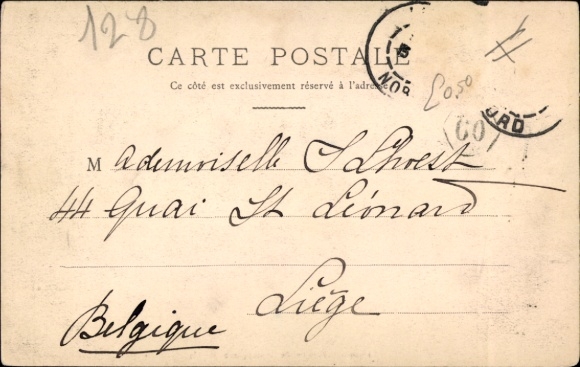 128
CARTE POSTALE
Ce côté est exclusivement réservé à l'adresse
0.50
NOR
ORD
Mademoiselle J Lhoest
44 Quai St Léonard
Liège
Belgique